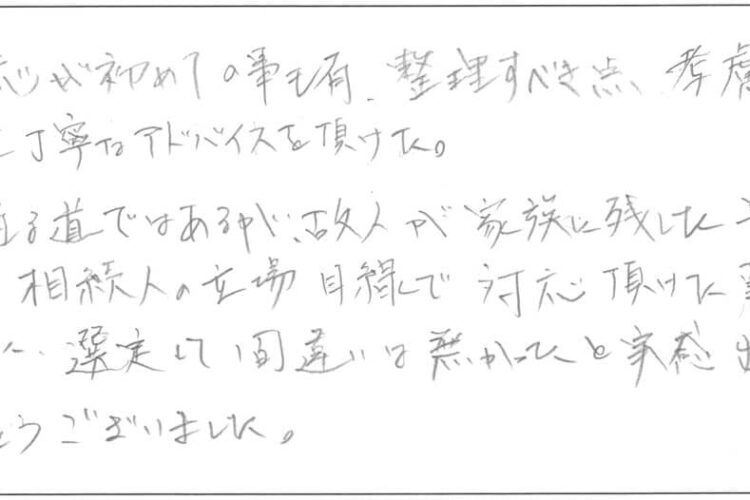 応が初めての事も有、整理すべき点、考慮
丁寧なアドバイスを頂けた。
る道ではあるが、故人が家族に残した
相続人の立場目線で対応頂けた事
選定して間違いは無かったと実感出
とうございました。